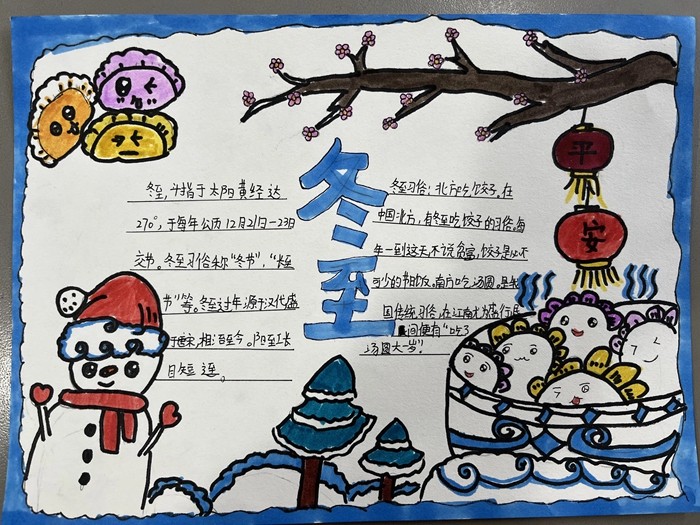 冬至
平
安
冬至,斗指于太阳黄经达
270°,于每年公历12月21日-23日
交节。冬至习俗称“冬节”,“
节”等。冬至过年源于汉代盛
于唐宋,相沿至今。阳至
日短至。
冬至习俗:北方吃饺子。在
中国北方,有冬至吃饺子的习俗。每
年一到这天,不论贫富,饺子是必不
可少的节日饭。南方吃汤圆,是我
国传统习俗,在江南尤为盛行民
间便有“吃了
汤圆大一岁”。